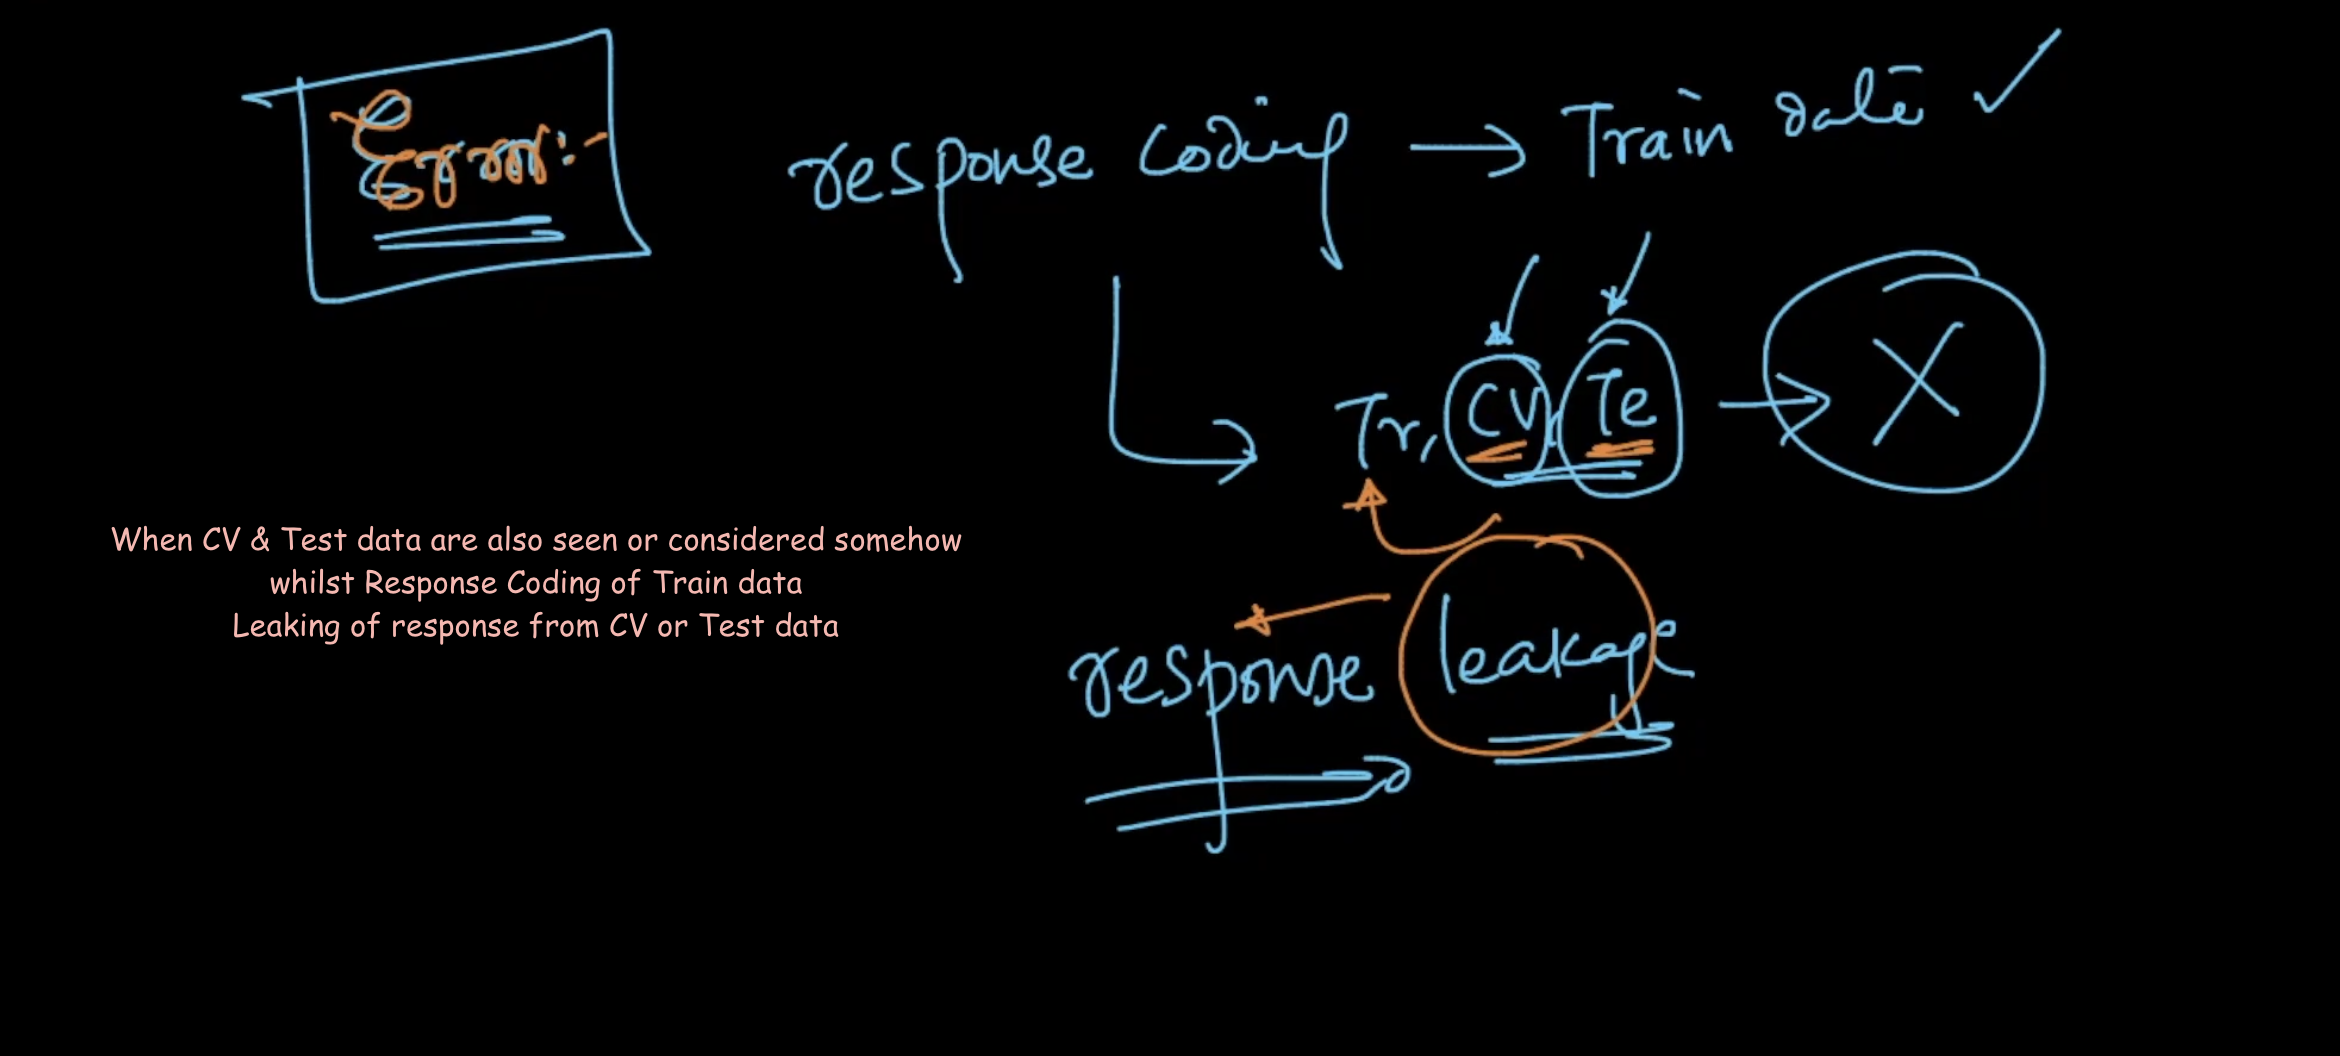 Error:-
response coding → Train data ✓
Tr, CV, Te → X
When CV & Test data are also seen or considered somehow
whilst Response Coding of Train data
Leaking of response from CV or Test data
response leakage